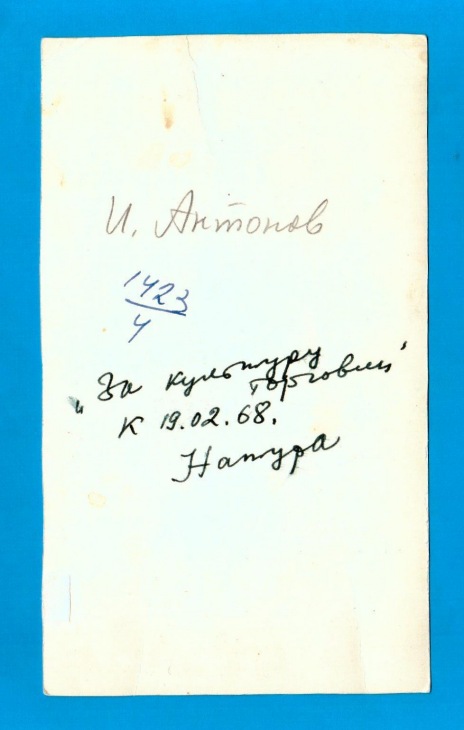 И. Антонов
1423
4
„За культуру
торговли"
К 19.02.68.
Натура